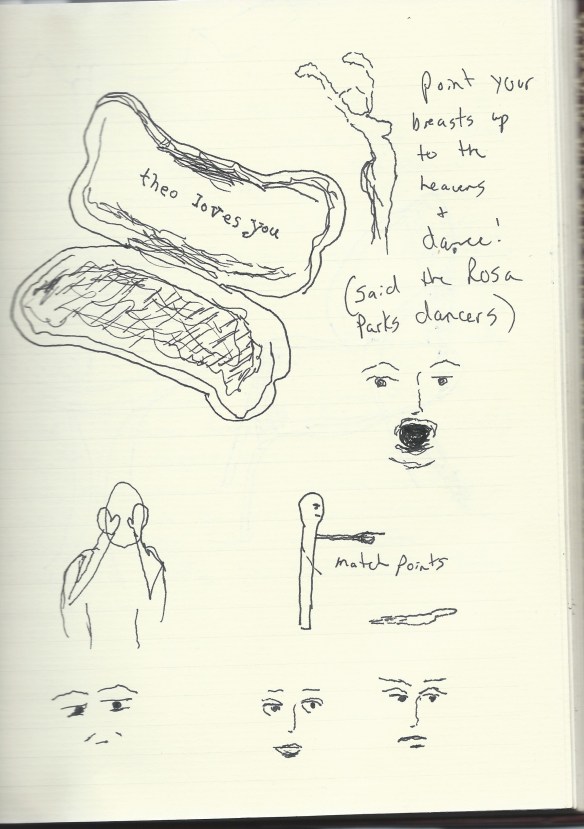 theo loves you
point your
breasts up
to the
heavens
+
dance!
(said the Rosa
Parks dancers)
match points